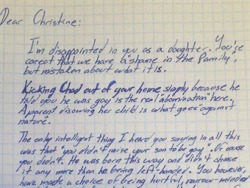 Dear Christine:
I'm disappointed in you as a daughter. You're
correct that we have a "shame in the family,"
but mistaken about what it is.
Kicking Chad out of your home simply because he
told you he was gay is the real "abomination" here.
A parent disowning her child is what goes against
nature.
The only intelligent thing I heard you saying in all this
was that "you didn't raise your son to be gay". Of course
you didn't. He was born this way and didn't choose
it any more than he being left-handed. You however,
have made a choice of being hurtful, narrow-minded